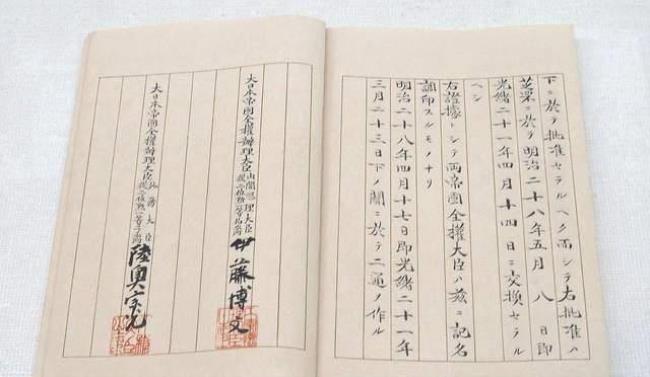 下ニ於テ批准セラルヘク而シテ右批准ハ
芝罘ニ於テ明治二十八年五月 八日即
光緒二十一年四月十四日ニ交換セラル
ヘシ
右證據トシテ兩帝國全權大臣ハ茲ニ記名
調印スルモノナリ
明治二十八年四月十七日即光緒二十一年
三月二十三日下ノ關ニ於テ二通ヲ作ル
大日本帝國全權辦理大臣 内閣總理大臣 伊藤博文
大日本帝國全權辦理大臣 外務大臣 陸奥宗光